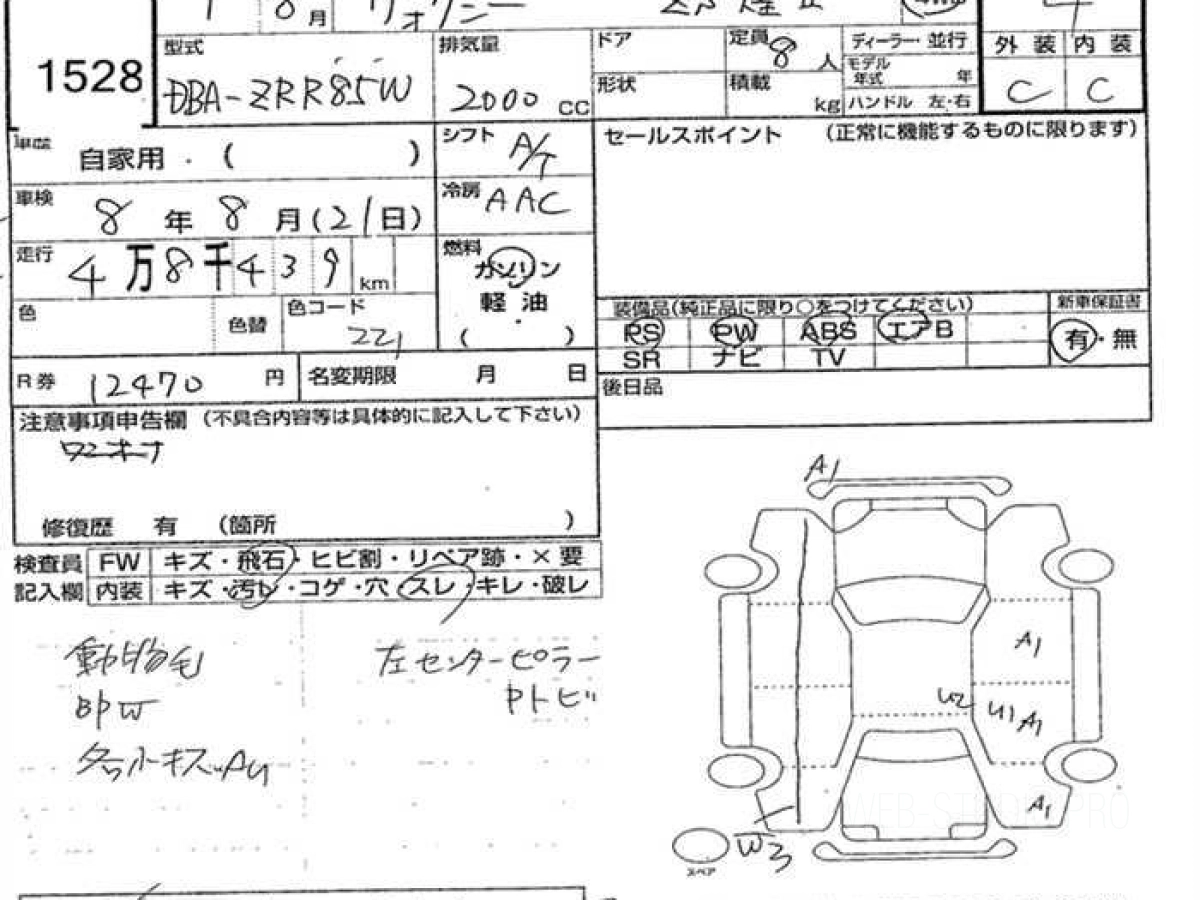 8月 ヴォクシー 煌Ⅱ 4WD
1528
型式 DBA-ZRR85W
排気量 2000 CC
ドア
形状
定員 8 人
積載 kg
ディーラー・並行
モデル年式 年
ハンドル 左・右
外装 内装
C C
車歴 自家用・( )
シフト A/T
車検 8年8月(21日)
冷房 AAC
走行 4万8千439 km
燃料 ガソリン
軽油
( )
色 色替 色コード 221
R券 12470 円 名変期限 月 日
セールスポイント (正常に機能するものに限ります)
装備品(純正品に限り○をつけてください) 新車保証書
PS PW ABS エアB 有・無
SR ナビ TV
後日品
注意事項申告欄 (不具合内容等は具体的に記入して下さい)
ワンオーナ
修復歴 有 (箇所 )
検査員 FW キズ・飛石・ヒビ割・リペア跡・×要
記入欄 内装 キズ・汚レ・コゲ・穴・スレ・キレ・破レ
動物毛 左センターピラー
即W 中トビ
各小キズ、AU
A1
A1
U2 U1 A1
A1
W3
スペア
WEB-STUDIO.PRO